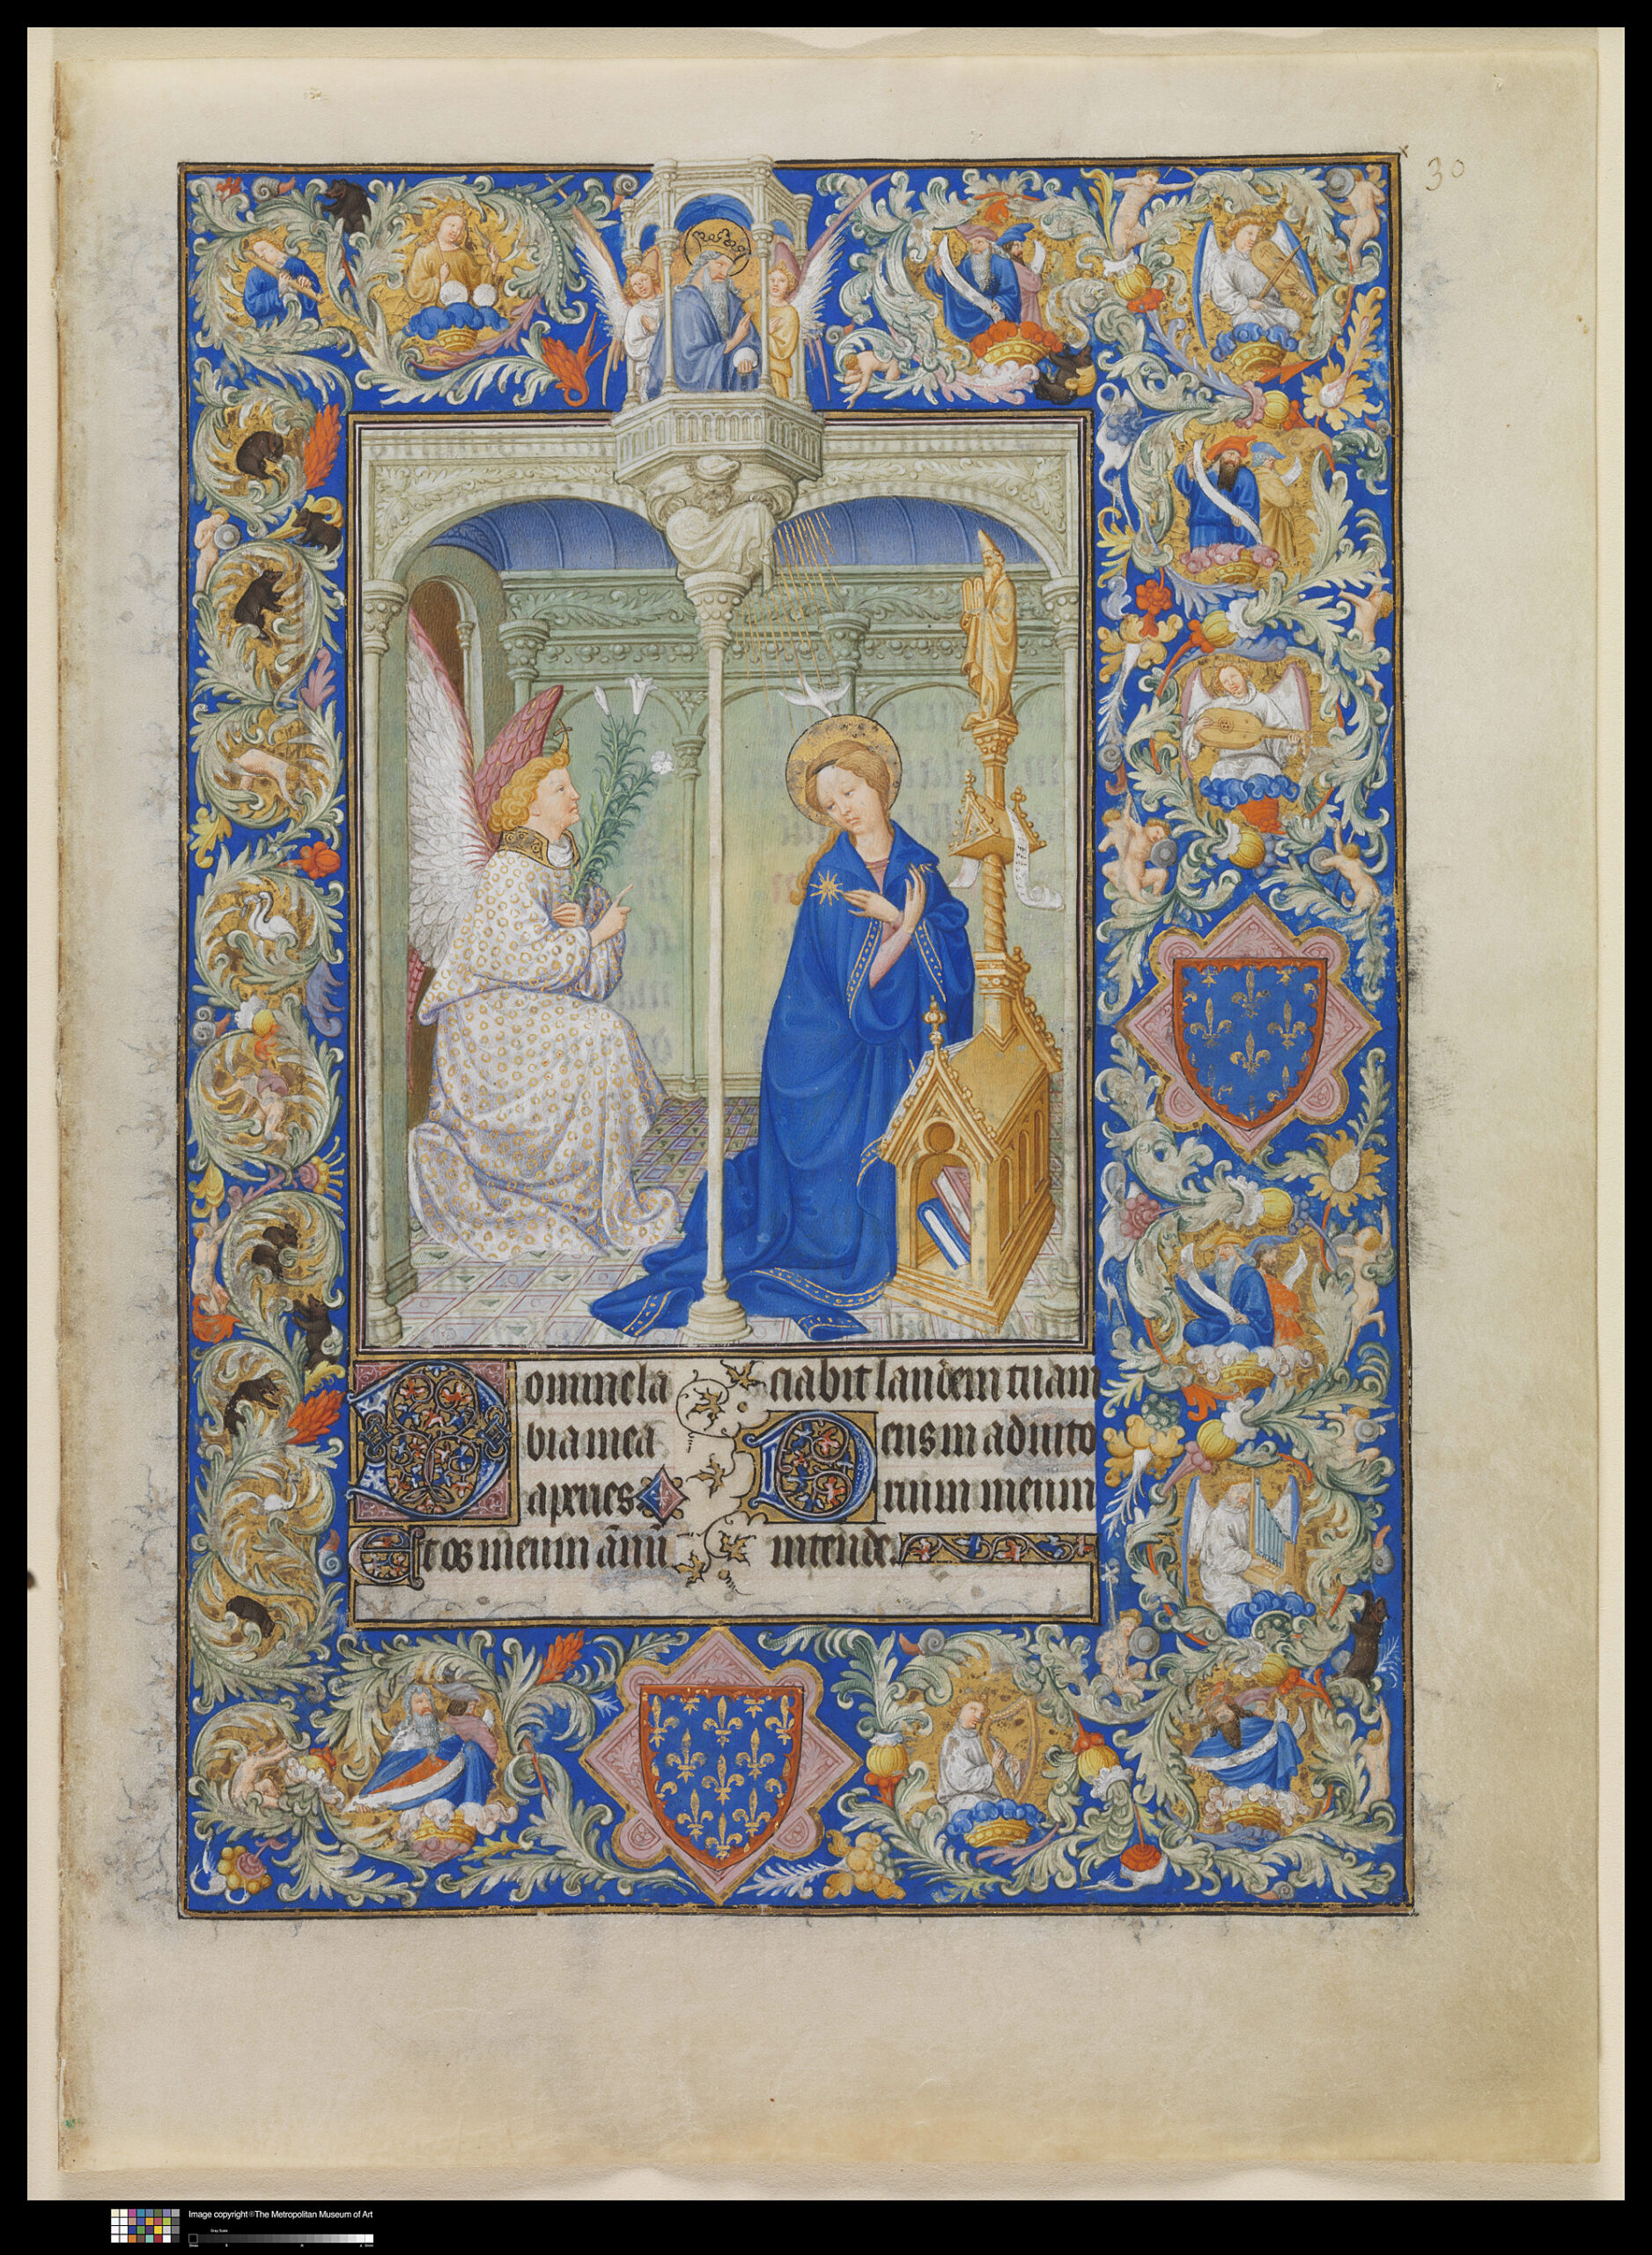 30
Domine la
bia mea
aperies
Et os meum ānū
ciabit laudem tuam
Deus in adiuto
rium meum
intende.
Image copyright © The Metropolitan Museum of Art